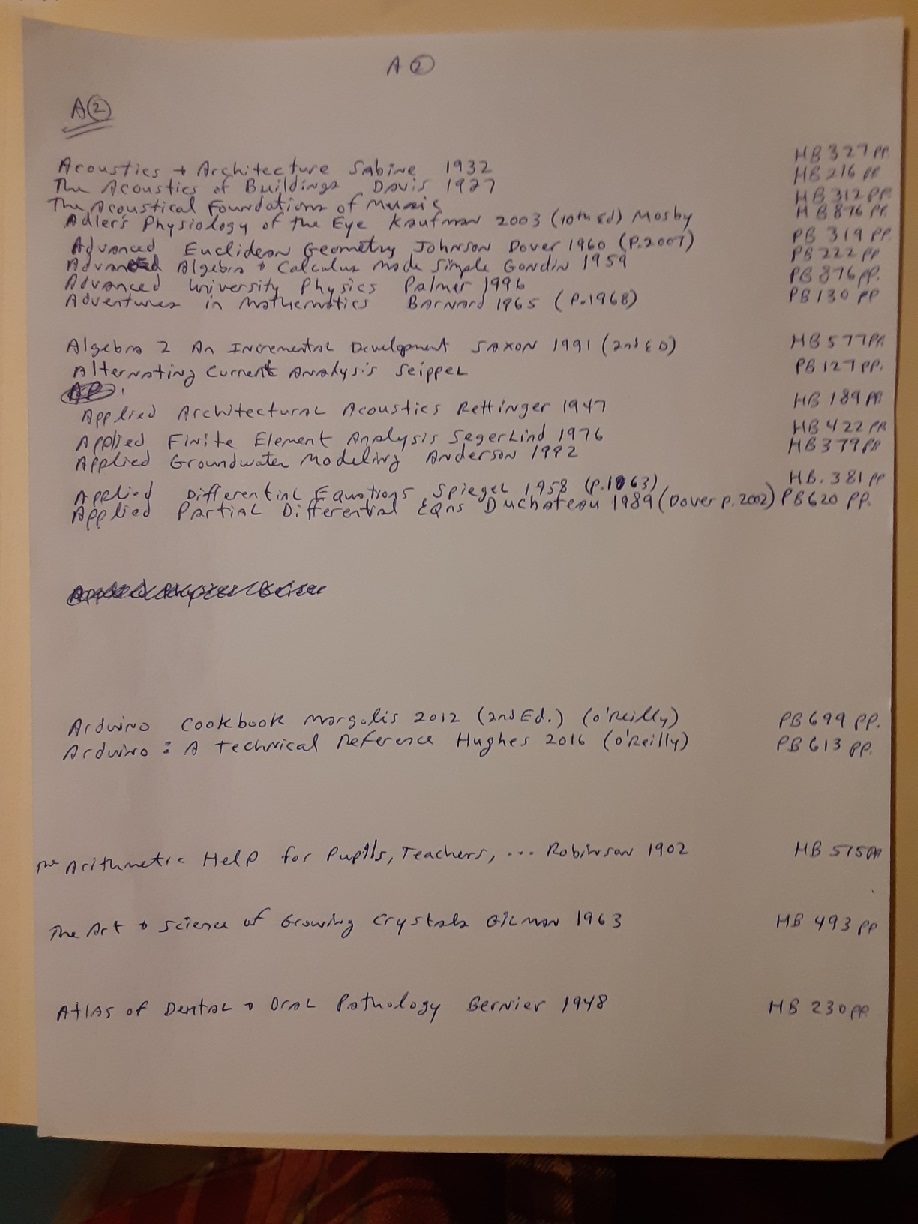 A ②
A②
Acoustics + Architecture Sabine 1932 HB 327 PP.
The Acoustics of Buildings Davis 1927 HB 216 PP
The Acoustical Foundations of Music HB 312 PP.
Adler's Physiology of the Eye Kaufman 2003 (10th Ed) Mosby HB 876 PP.
Advanced Euclidean Geometry Johnson Dover 1960 (P.2007) PB 319 PP.
Advanced Algebra + Calculus Made Simple Gondin 1959 PB 222 PP
Advanced University Physics Palmer 1996 PB 876 PP.
Adventures in Mathematics Barnard 1965 (P.1968) PB 130 PP
Algebra 2 An Incremental Development Saxon 1991 (2nd ED) HB 577 PP.
Alternating Current Analysis Seippel PB 127 PP.
Applied Architectural Acoustics Rettinger 1947 HB 189 PP
Applied Finite Element Analysis Segerlind 1976 HB 422 PP
Applied Groundwater Modeling Anderson 1992 HB 379 PP
Applied Differential Equations Spiegel 1958 (P.1963) HB. 381 PP
Applied Partial Differential Eqns Duchateau 1989 (Dover P. 2002) PB 620 PP.
Arduino Cookbook Margolis 2012 (2nd Ed.) (O'Reilly) PB 699 PP.
Arduino: A Technical Reference Hughes 2016 (O'Reilly) PB 613 PP.
The Arithmetic Help for Pupils, Teachers, ... Robinson 1902 HB 515 PP
The Art + Science of Growing Crystals Gilman 1963 HB 493 PP
Atlas of Dental + Oral Pathology Bernier 1948 HB 230 PP